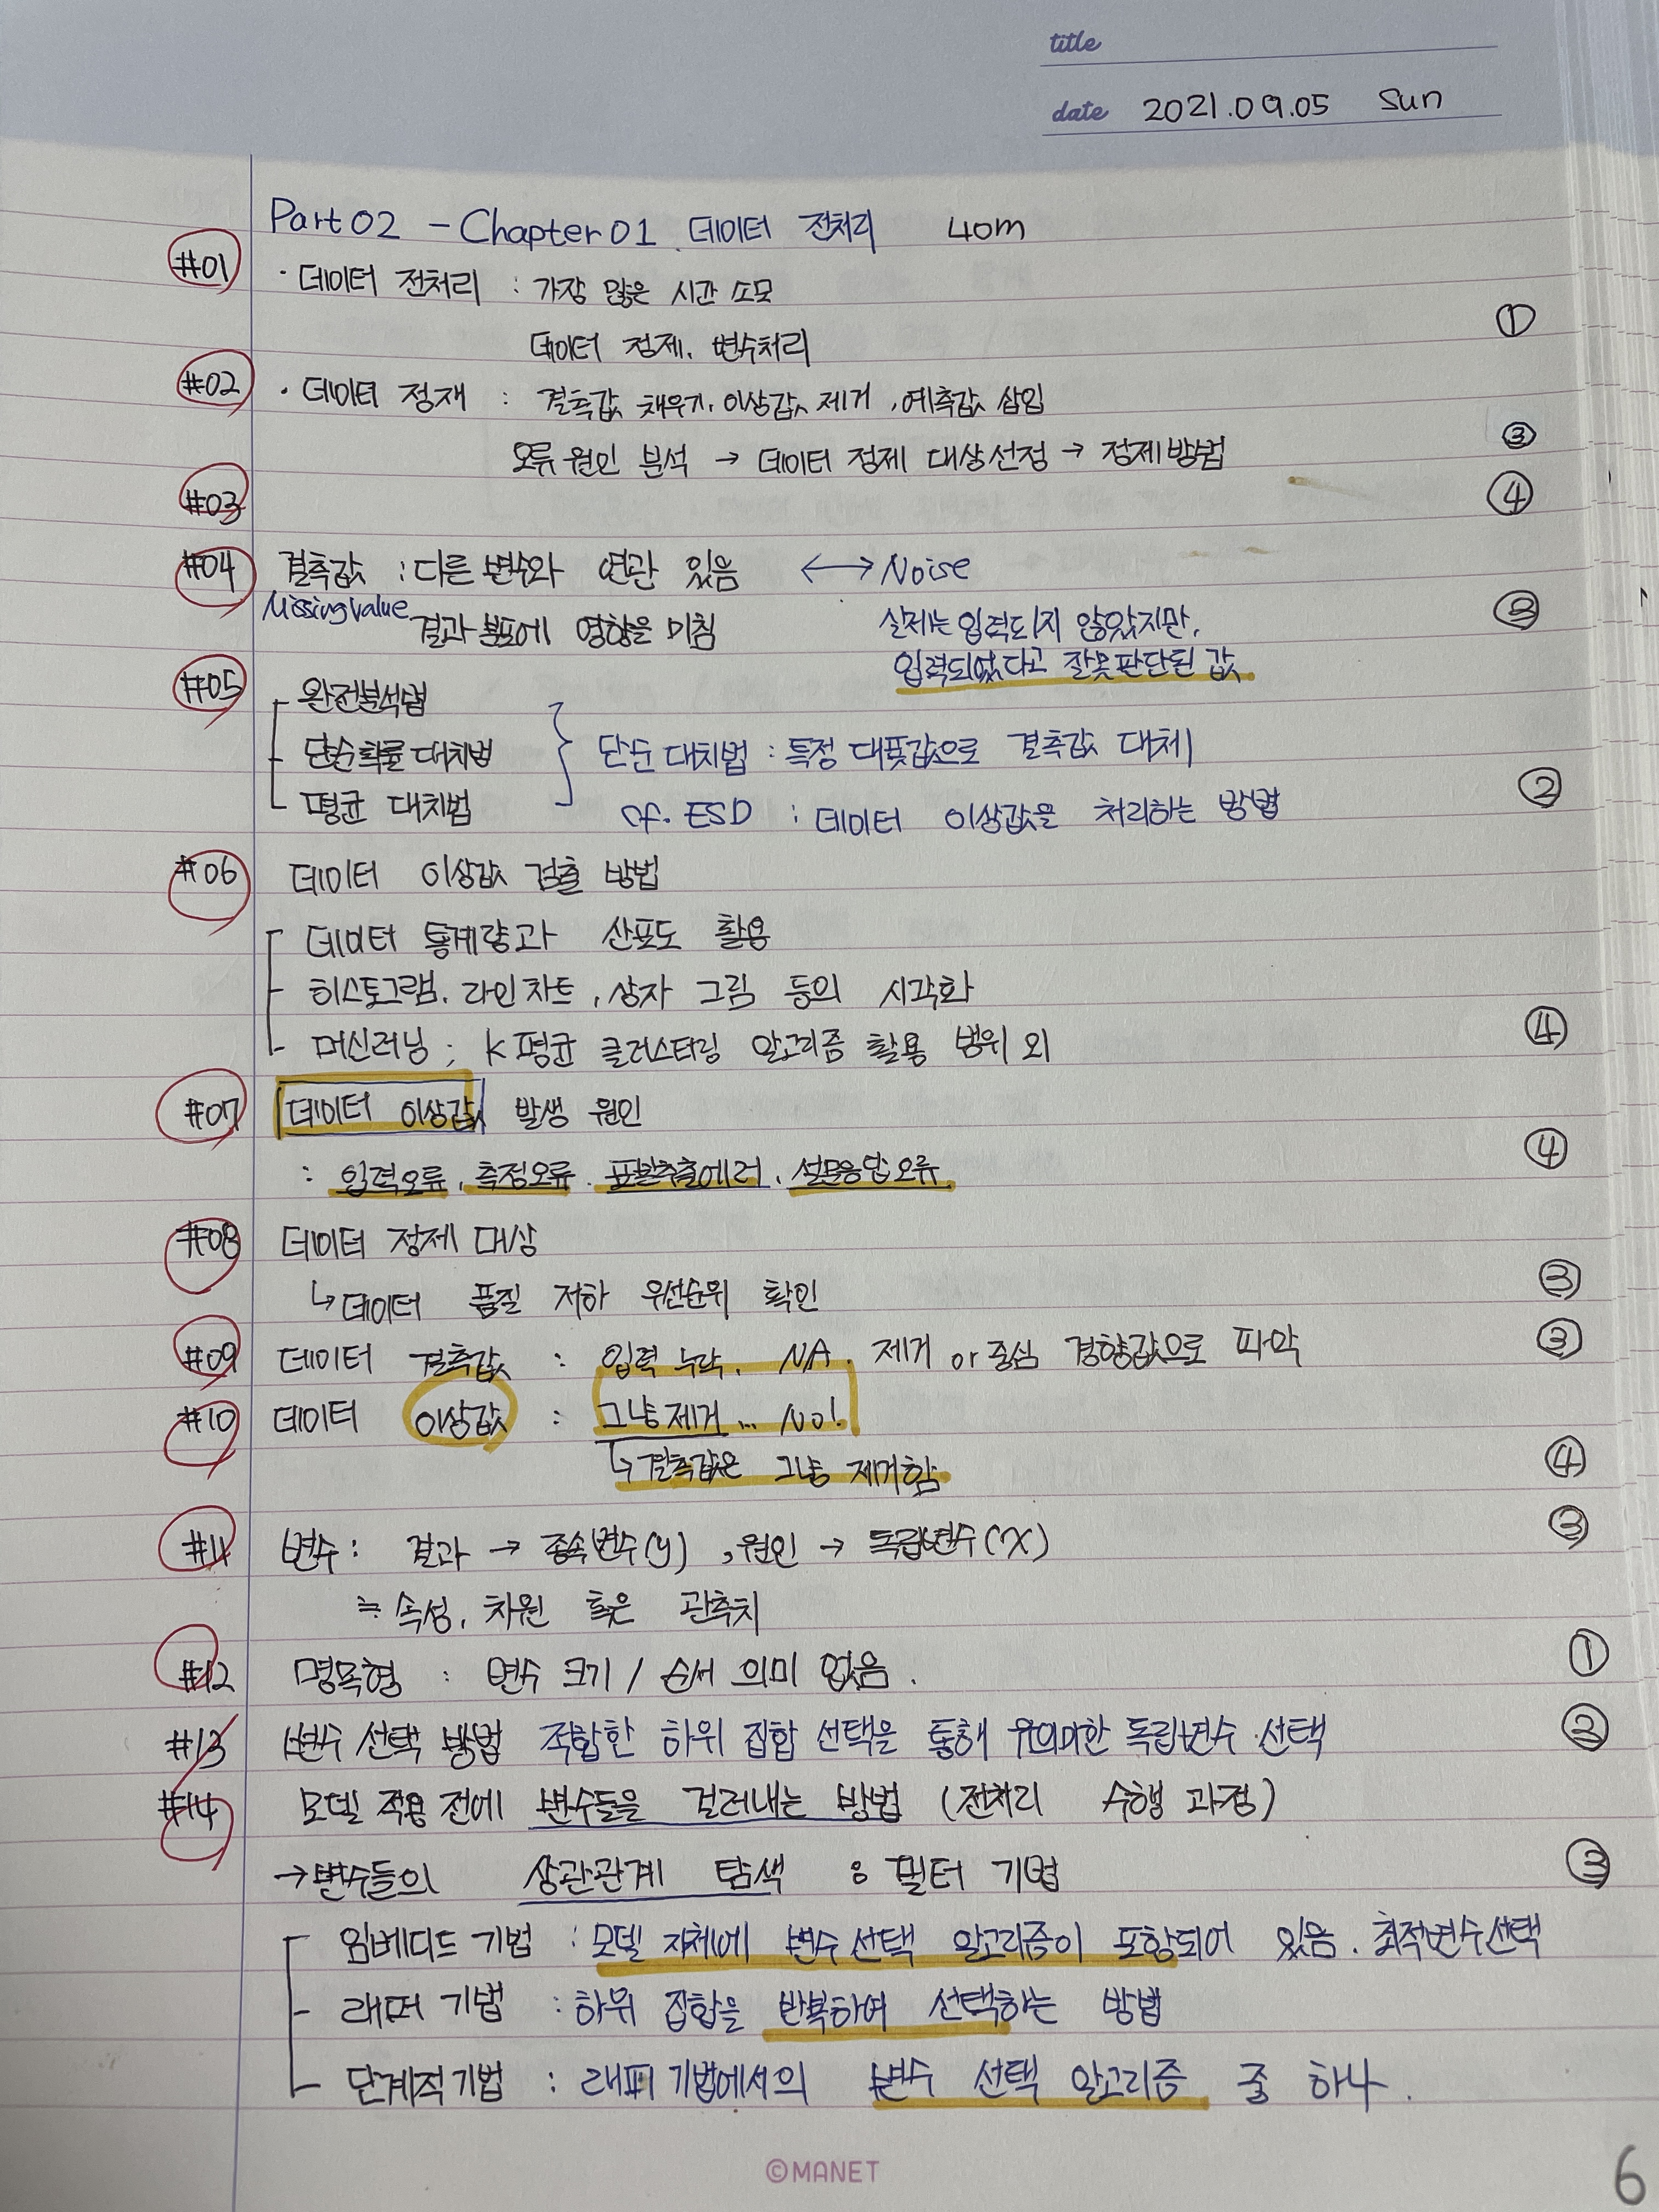 title
date 2021.09.05 Sun
Part 02 - Chapter 01. 데이터 전처리 40m
#01 · 데이터 전처리 : 가장 많은 시간 소모
데이터 정제, 변수처리 ①
#02 · 데이터 정재 : 결측값 채우기, 이상값 제거, 예측값 삽입
오류 원인 분석 → 데이터 정제 대상 선정 → 정제 방법 ③
#03 ④
#04 결측값 : 다른 변수와 연관 있음 ↔ Noise
Missing value 결과 분포에 영향을 미침 실제는 입력되지 않았지만, ③
입력되었다고 잘못 판단된 값
#05 완전분석법
단순확률 대치법 단순 대치법 : 특정 대푯값으로 결측값 대체
평균 대치법 cf. ESD : 데이터 이상값을 처리하는 방법 ②
#06 데이터 이상값 검출 방법
데이터 통계량과 산포도 활용
히스토그램, 라인차트, 상자 그림 등의 시각화
머신러닝 ; K평균 클러스터링 알고리즘 활용 범위 외 ④
#07 데이터 이상값 발생 원인
: 입력오류, 측정오류. 표본추출에러, 설문응답오류 ④
#08 데이터 정제 대상
↳ 데이터 품질 저하 우선순위 확인 ③
#09 데이터 결측값 : 입력 누락, NA. 제거 or 중심 경향값으로 파악 ③
#10 데이터 이상값 : 그냥 제거... No!
↳ 결측값은 그냥 제거함 ④
#11 변수 : 결과 → 종속변수(y), 원인 → 독립변수(x) ③
≒ 속성, 차원 혹은 관측치
#12 명목형 : 변수 크기 / 순서 의미 없음. ①
#13 변수 선택 방법 적합한 하위 집합 선택을 통해 유의미한 독립변수 선택 ②
#14 모델 적용 전에 변수들을 걸러내는 방법 (전처리 수행 과정)
→ 변수들의 상관관계 탐색 : 필터 기법 ③
임베디드 기법 : 모델 자체에 변수 선택 알고리즘이 포함되어 있음. 최적변수선택
래퍼 기법 : 하위 집합을 반복하여 선택하는 방법
단계적 기법 : 래퍼 기법에서의 변수 선택 알고리즘 중 하나.
©MANET
6